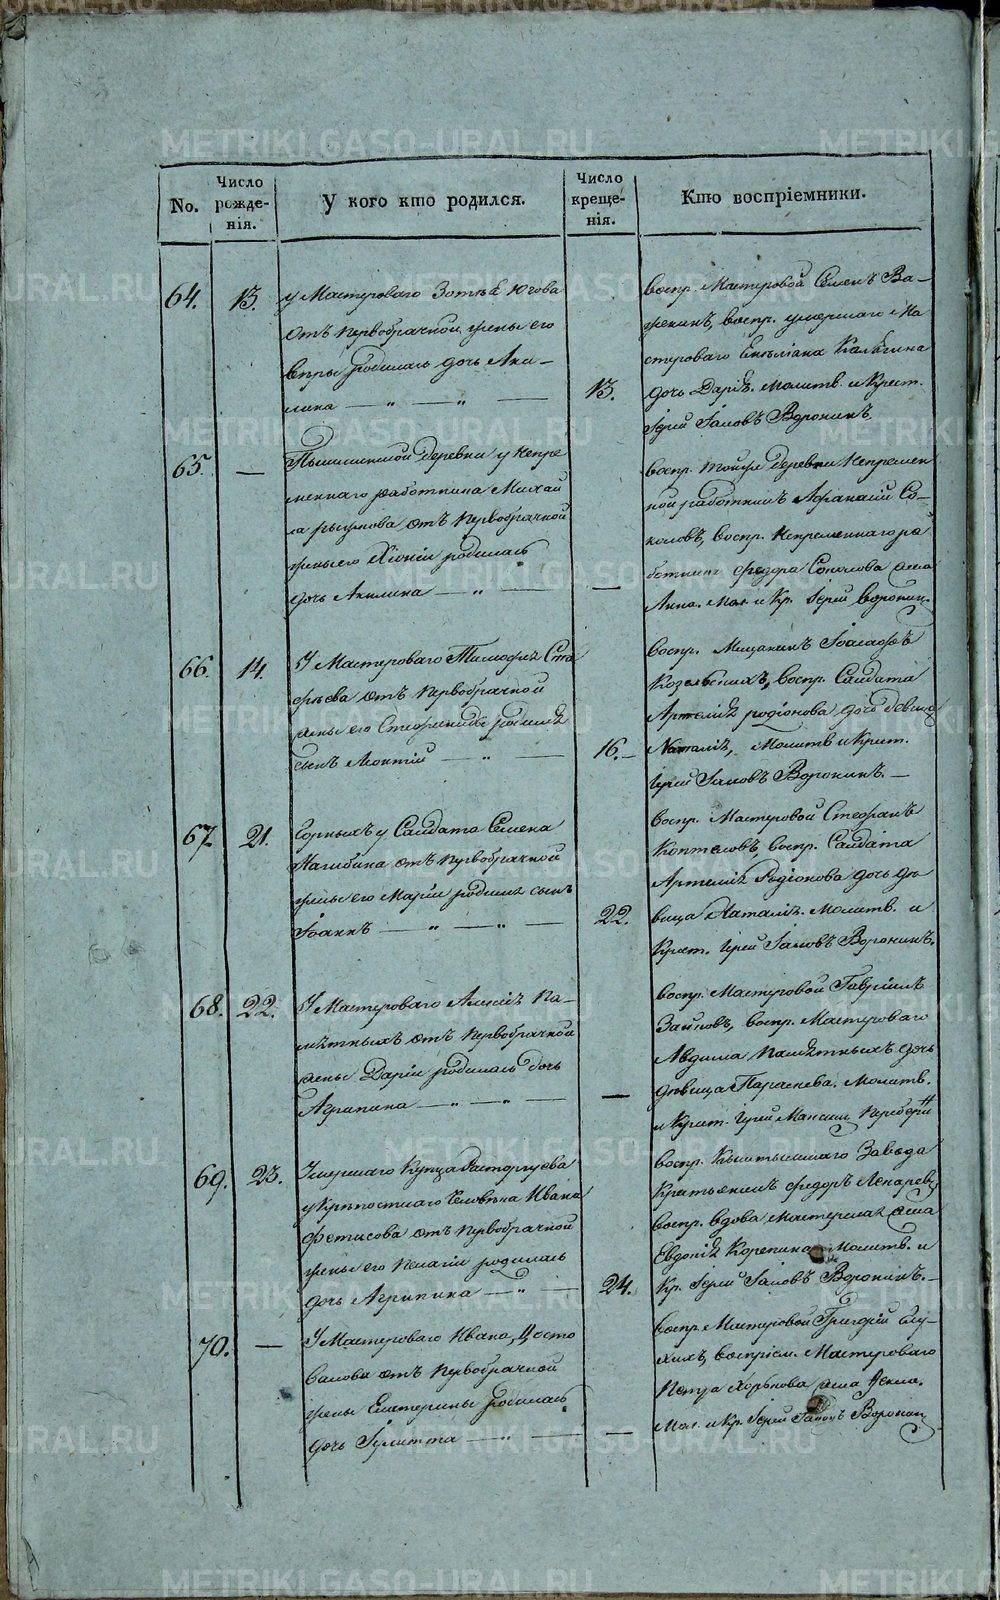 No.
Число рожде-нія.
У кого кто родился.
Число креще-нія.
Кто воспріемники.
64.
13.
у Мастероваго Зотѣя Югова
отъ первобрачной жены его
Вѣры родилась дочь Аки-
лина — " — " —
13.
Воспр. Мастеровой Семенъ Ва-
женинъ, воспр. умершаго Ма
стероваго
дочь Дарія. Молитв. и Крест.
Іерей Іаковъ Воронинъ.
65.
—
Пышминской деревни у непре
меннаго работника Михай
ла отъ первобрачной
жены его Хіоніи родилась
дочь Акилина — " —
—
Воспр. той же деревни непремен
ной работникъ Афанасій Со-
коловъ, воспр. непременнаго ра
ботника Федора Соколова жена
Анна. Мол. и Кр. Іерей Воронин.
66.
14.
У Мастероваго Тимофея Ста
фѣева отъ первобрачной
жены его Стефаниды родился
сынъ Леонтій — " —
16. —
Воспр. Мещанинъ Іоасафъ
Козельскихъ, воспр. Салдата
Артемія Родіонова дочь девица
Наталія, Молитв. и Крест.
Іерей Іаковъ Воронинъ. —
67.
21.
Горныхъ у Салдата Семена
Нагибина отъ первобрачной
жены его Маріи родился сынъ
Іоаннъ — " — " —
22.
Воспр. Мастеровой Стефанъ
Коптеловъ, воспр. Салдата
Артемія Родіонова дочь дѣ
вица Наталія. Молитв. и
Крест. Іерей Іаковъ Воронинъ.
68.
22.
У Мастероваго Алексія Па-
мѣтныхъ отъ первобрачной
жены Даріи родилась дочь
Агрипина — " — " —
—
Воспр. Мастеровой Гавріилъ
Зайковъ, воспр. Мастероваго
Авдила Памѣтныхъ дочь
дѣвица Параскева. Молитв.
и Крест. Іерей Максим
69.
23.
Умершаго Купца Расторгуева
у Крѣпостнаго Человѣка Ивана
Фетисова отъ первобрачной
жены его Пелагіи родилась
дочь Агрипина — " —
24.
Воспр. Кыштымскаго Завода
Крестьянинъ Федоръ
воспр. вдова Мастерская жена
Евдокія Корепина. Молитв. и
Кр. Іерей Іаковъ Воронинъ. —
70.
—
У Мастероваго Ивана
валова отъ первобрачной
жены Екатерины родилась
дочь Іулитта — " —
—
Воспр. Мастеровой Григорій Глу-
хихъ, воспріем. Мастероваго
Петра Хорькова жена
Мол. и Кр. Іерей Іаковъ Воронин
METRIKI.GASO-URAL.RU